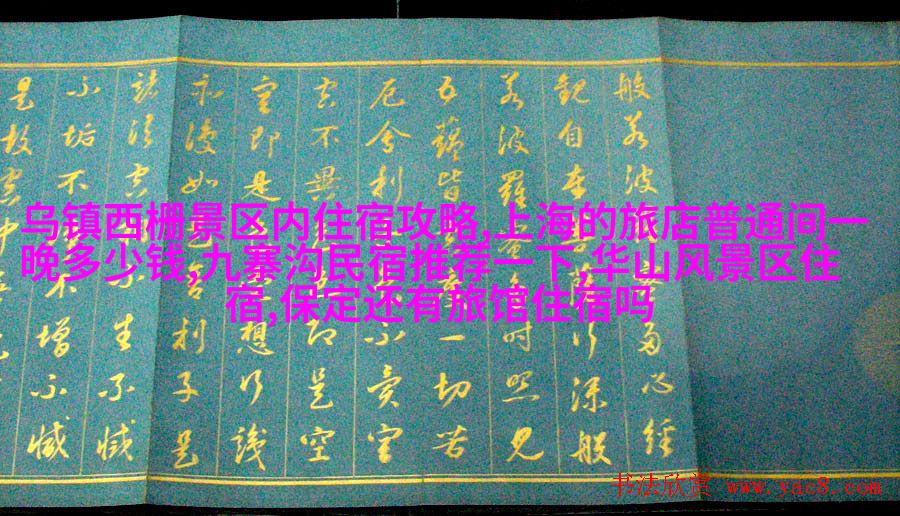 般若波多心経
観自在菩行深般
若波羅時照見
五蘊皆一切苦
厄舍利不異空
空不異即是空
空即是想行識
亦復如舍利子是
諸法空生不滅
不垢不不增不減
是故空中
乌镇西棚景区内住宿攻略,上海的旅店普通间一
晚多少钱,九寨沟民宿推荐一下,华山风景区住
宿,保定还有旅馆住宿吗
书法欣赏 www.yac8.com